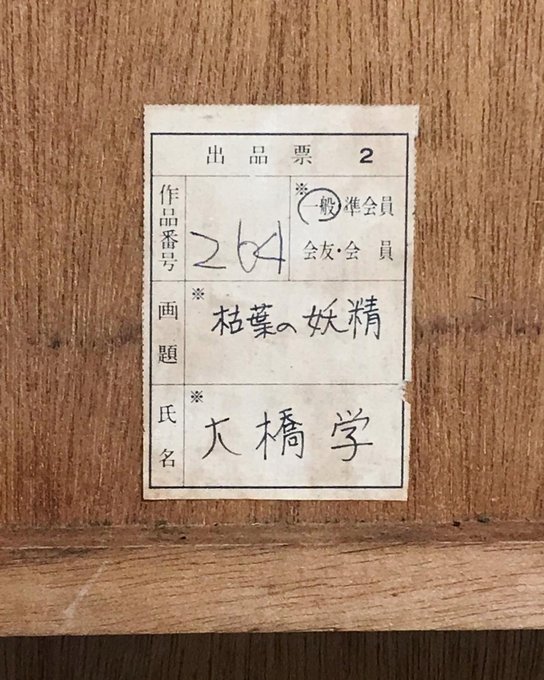 出品票 2
作品番号
264
※
一般・準会員
会友・会員
画題
※
枯葉の妖精
氏名
※
大橋学